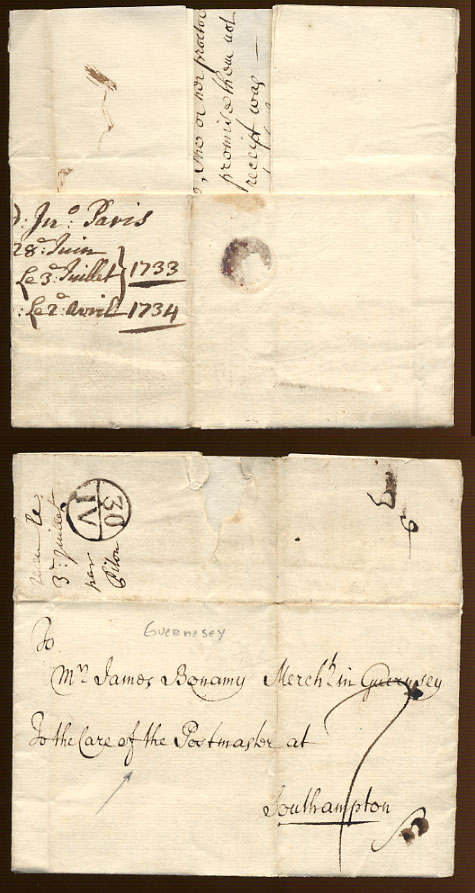 the or nor proctor
promise them not
receipt was —
: Jnº: Paris
28ᵈ: Juin
Le 3ᵈ: Juillet } 1733
: Le 2ᵈ: avril 1734
Le
3ᵈ: Juillet
par
Pilon
30
IV
Guernesey
To
Mʳ James Bonamy Merchᵗ in Guernsey
To the Care of the Postmaster at
Southampton